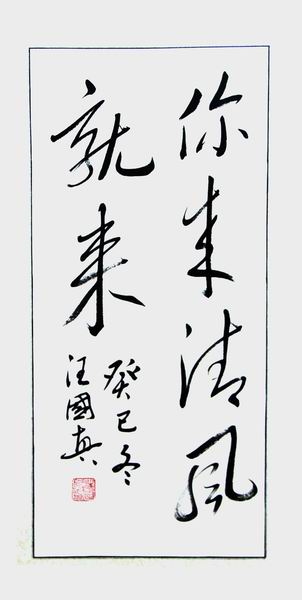 你来清风
就来
癸巳冬
汪國真